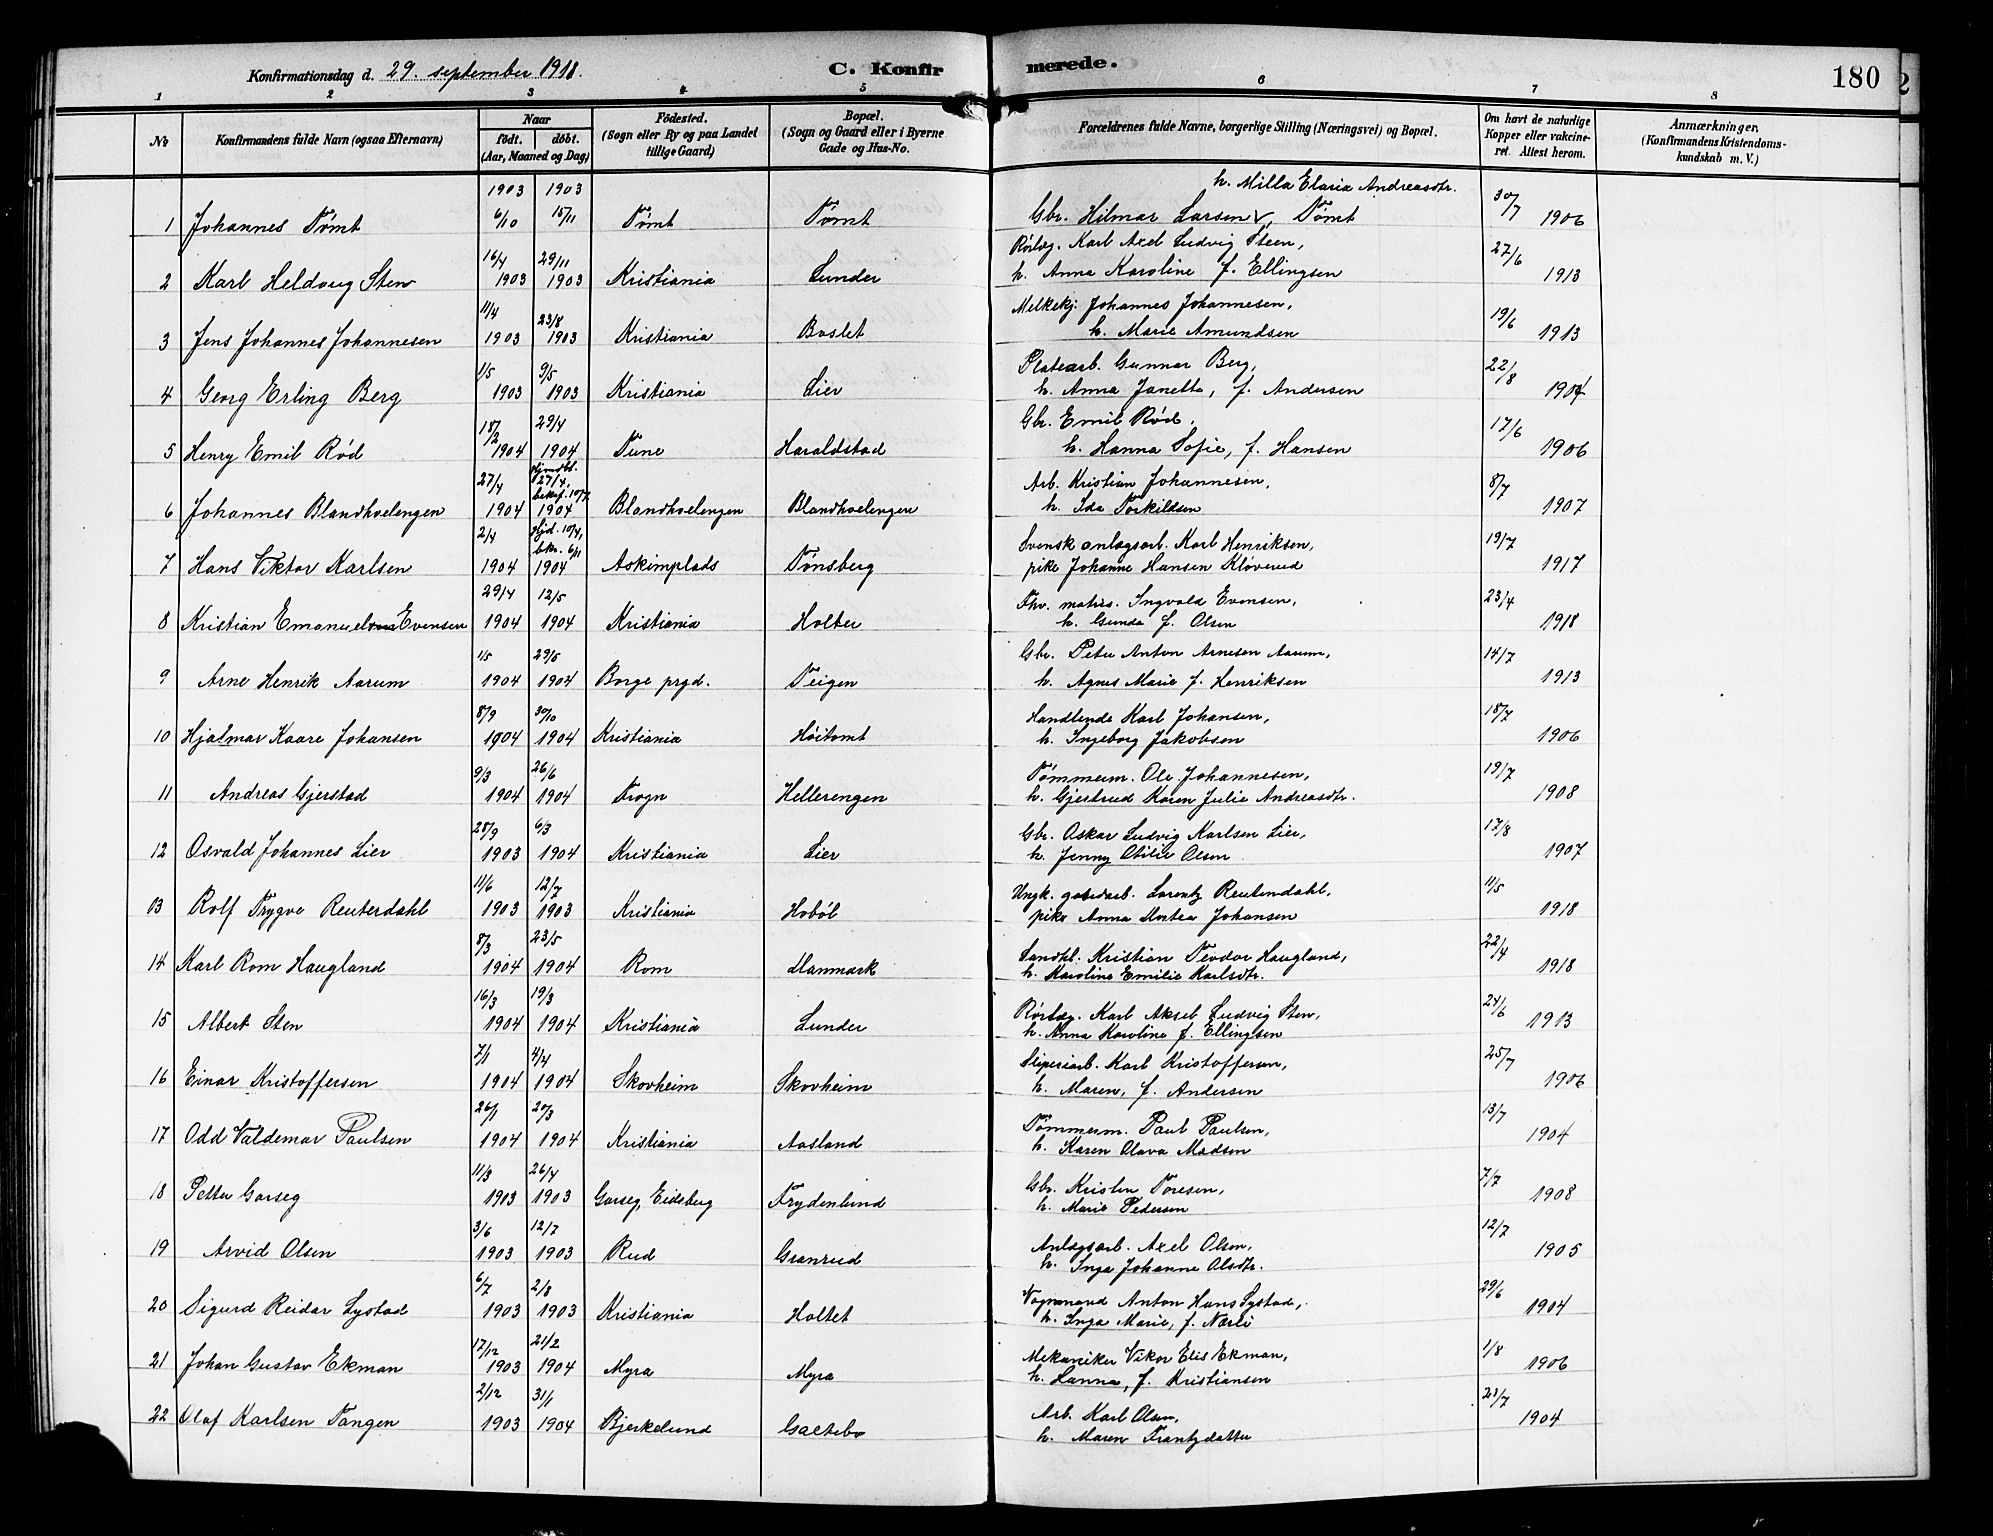 Konfirmationsdag d. 29. september 1918.
C. Konfirmerede.
180
1 2 3 4 5 6 7 8
No
Konfirmandens fulde Navn (ogsaa Efternavn)
Naar
født. døbt.
(Aar, Maaned og Dag)
Fødested.
(Sogn eller By og paa Landet
tillige Gaard)
Bopæl.
(Sogn og Gaard eller i Byerne
Gade og Hus-No.
Forældrenes fulde Navne, borgerlige Stilling (Næringsvei) og Bopæl.
Om havt de naturlige
Kopper eller vakcine-
ret. Attest herom.
Anmærkninger.
(Konfirmandens Kristendoms-
kundskab m. V.)
h. Milla Elaria Andreasdtr.
1 Johannes Tømt 1903 6/10 1903 15/11 Tømt Tømt Gbr. Hilmar Larsen, Tømt 30/7 1906
2 Karl Heldvug Sten 16/4 1903 29/11 1903 Kristiania Lunder Rørlæg. Karl Axel Ludvig Steen,
h. Anna Karoline f. Ellingsen 27/6 1913
3 Jens Johannes Johannesen 11/4 1903 23/8 1903 Kristiania Baslet Melkekj. Johannes Johannesen,
h. Marie Amundsen 19/6 1913
4 Georg Erling Berg 1/5 1903 9/5 1903 Kristiania Lier Platearb. Gunnar Berg,
h. Anna Janette, f. Andersen 22/8 1904
5 Henry Emil Rød 18/2 1904 29/4 1904 Tune Haraldstad Gbr. Emil Rød,
h. Hanna Sofie, f. Hansen 17/6 1906
6 Johannes Blandhoelengen 27/4 1904 hjmdbt. 27/4, bekref. 10/7 1904 Blandhoelengen Blandhoelengen Arb. Kristian Johannesen,
h. Ida Torkildsen 8/7 1907
7 Hans Viktor Karlsen 2/4 1904 hjd. 10/4, bkr. 6/11 1904 Askimplads Tønsberg Svensk anlægsarb. Karl Henriksen,
pike Johanne Hansen Kløverud 19/7 1917
8 Kristian Emanuel Evensen 29/4 1904 12/5 1904 Kristiania Holter Fhv. matros. Ingvald Evensen,
h. Gunda f. Olsen 23/4 1918
9 Arne Henrik Aarum 1/5 1904 29/5 1904 Borge prgd. Teigen Gbr. Peter Anton Arnesen Aarum,
h. Agnes Marie f. Henriksen 14/7 1913
10 Hjalmar Kaare Johansen 8/9 1904 30/10 1904 Kristiania Høitomt Handlende Karl Johansen,
h. Ingeborg Jakobsen 18/7 1906
11 Andreas Gjerstad 9/3 1904 26/6 1904 Frogn Hellerengen Tømmerm. Ole Johannesen,
h. Gjertrud Karen Julie Andreasdtr. 19/7 1908
12 Osvald Johannes Lier 28/9 1903 6/3 1904 Kristiania Lier Gbr. Oskar Ludvig Karlsen Lier,
h. Jenny Otilie Olsen 17/8 1907
13 Rolf Trygve Reuterdahl 11/6 1903 12/7 1903 Kristiania Hobøl Ungk. gaardarb. Lorentz Reuterdahl,
pike Anna Mortea Johansen 11/5 1918
14 Karl Rom Haugland 8/3 1904 23/5 1904 Rom Danmark Landhl. Kristian Teodor Haugland,
h. Karoline Emilie Karlsdtr. 22/4 1918
15 Albert Sten 16/3 1904 19/3 1904 Kristiania Lunder Rørlæg. Karl Aksel Ludvig Sten,
h. Anna Karoline f. Ellingsen 24/6 1913
16 Einar Kristoffersen 7/1 1904 4/4 1904 Skovheim Skovheim Sliperiarb. Karl Kristoffersen,
h. Maren, f. Andersen 25/7 1906
17 Odd Valdemar Paulsen 26/1 1904 20/3 1904 Kristiania Aasland Tømmerm. Paul Paulsen,
h. Karen Olava Madsen 13/7 1904
18 Petter Garseg 11/3 1903 26/4 1903 Garseg, Eidsberg Frydenlund Gbr. Kristen Toresen,
h. Marie Pedersen 7/7 1908
19 Arvid Olsen 3/6 1903 12/7 1903 Rud Granrud Anlægsarb. Axel Olsen,
h. Inga Johanne Olsdtr. 12/7 1905
20 Sigurd Reidar Systad 6/7 1903 2/8 1903 Kristiania Holtet Vognmand Anton Hans Systad,
h. Inga Marie, f. Nærli 29/6 1904
21 Johan Gustav Ekman 17/12 1903 21/2 1904 Myra Myra Mekaniker Vikor Elis Ekman,
h. Hanna, f. Kristiansen 1/8 1906
22 Olaf Karlsen Tangen 2/12 1903 31/1 1904 Bjerkelund Galtebo Arb. Karl Olsen,
h. Maren Frantzdatter 23/7 1904